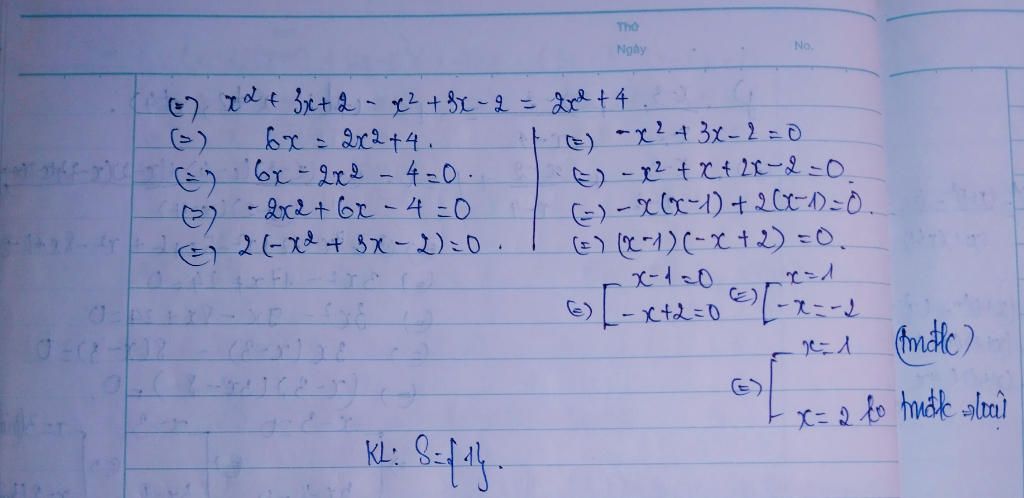 Thứ
Ngày . . No.
(=) x² + 3x + 2 - x² + 3x - 2 = 2x² + 4.
(=) 6x = 2x² + 4.
(=) 6x - 2x² - 4 = 0.
(=) -2x² + 6x - 4 = 0
(=) 2(-x² + 3x - 2) = 0.
(=) -x² + 3x - 2 = 0
(=) -x² + x + 2x - 2 = 0.
(=) -x(x-1) + 2(x-1) = 0.
(=) (x-1)(-x+2) = 0.
(=) [ x-1=0 (=) [ x=1
-x+2=0 -x=-2
(=) [ x=1 (tmđk)
x=2 ko tmđk → loại
KL: S={1}.